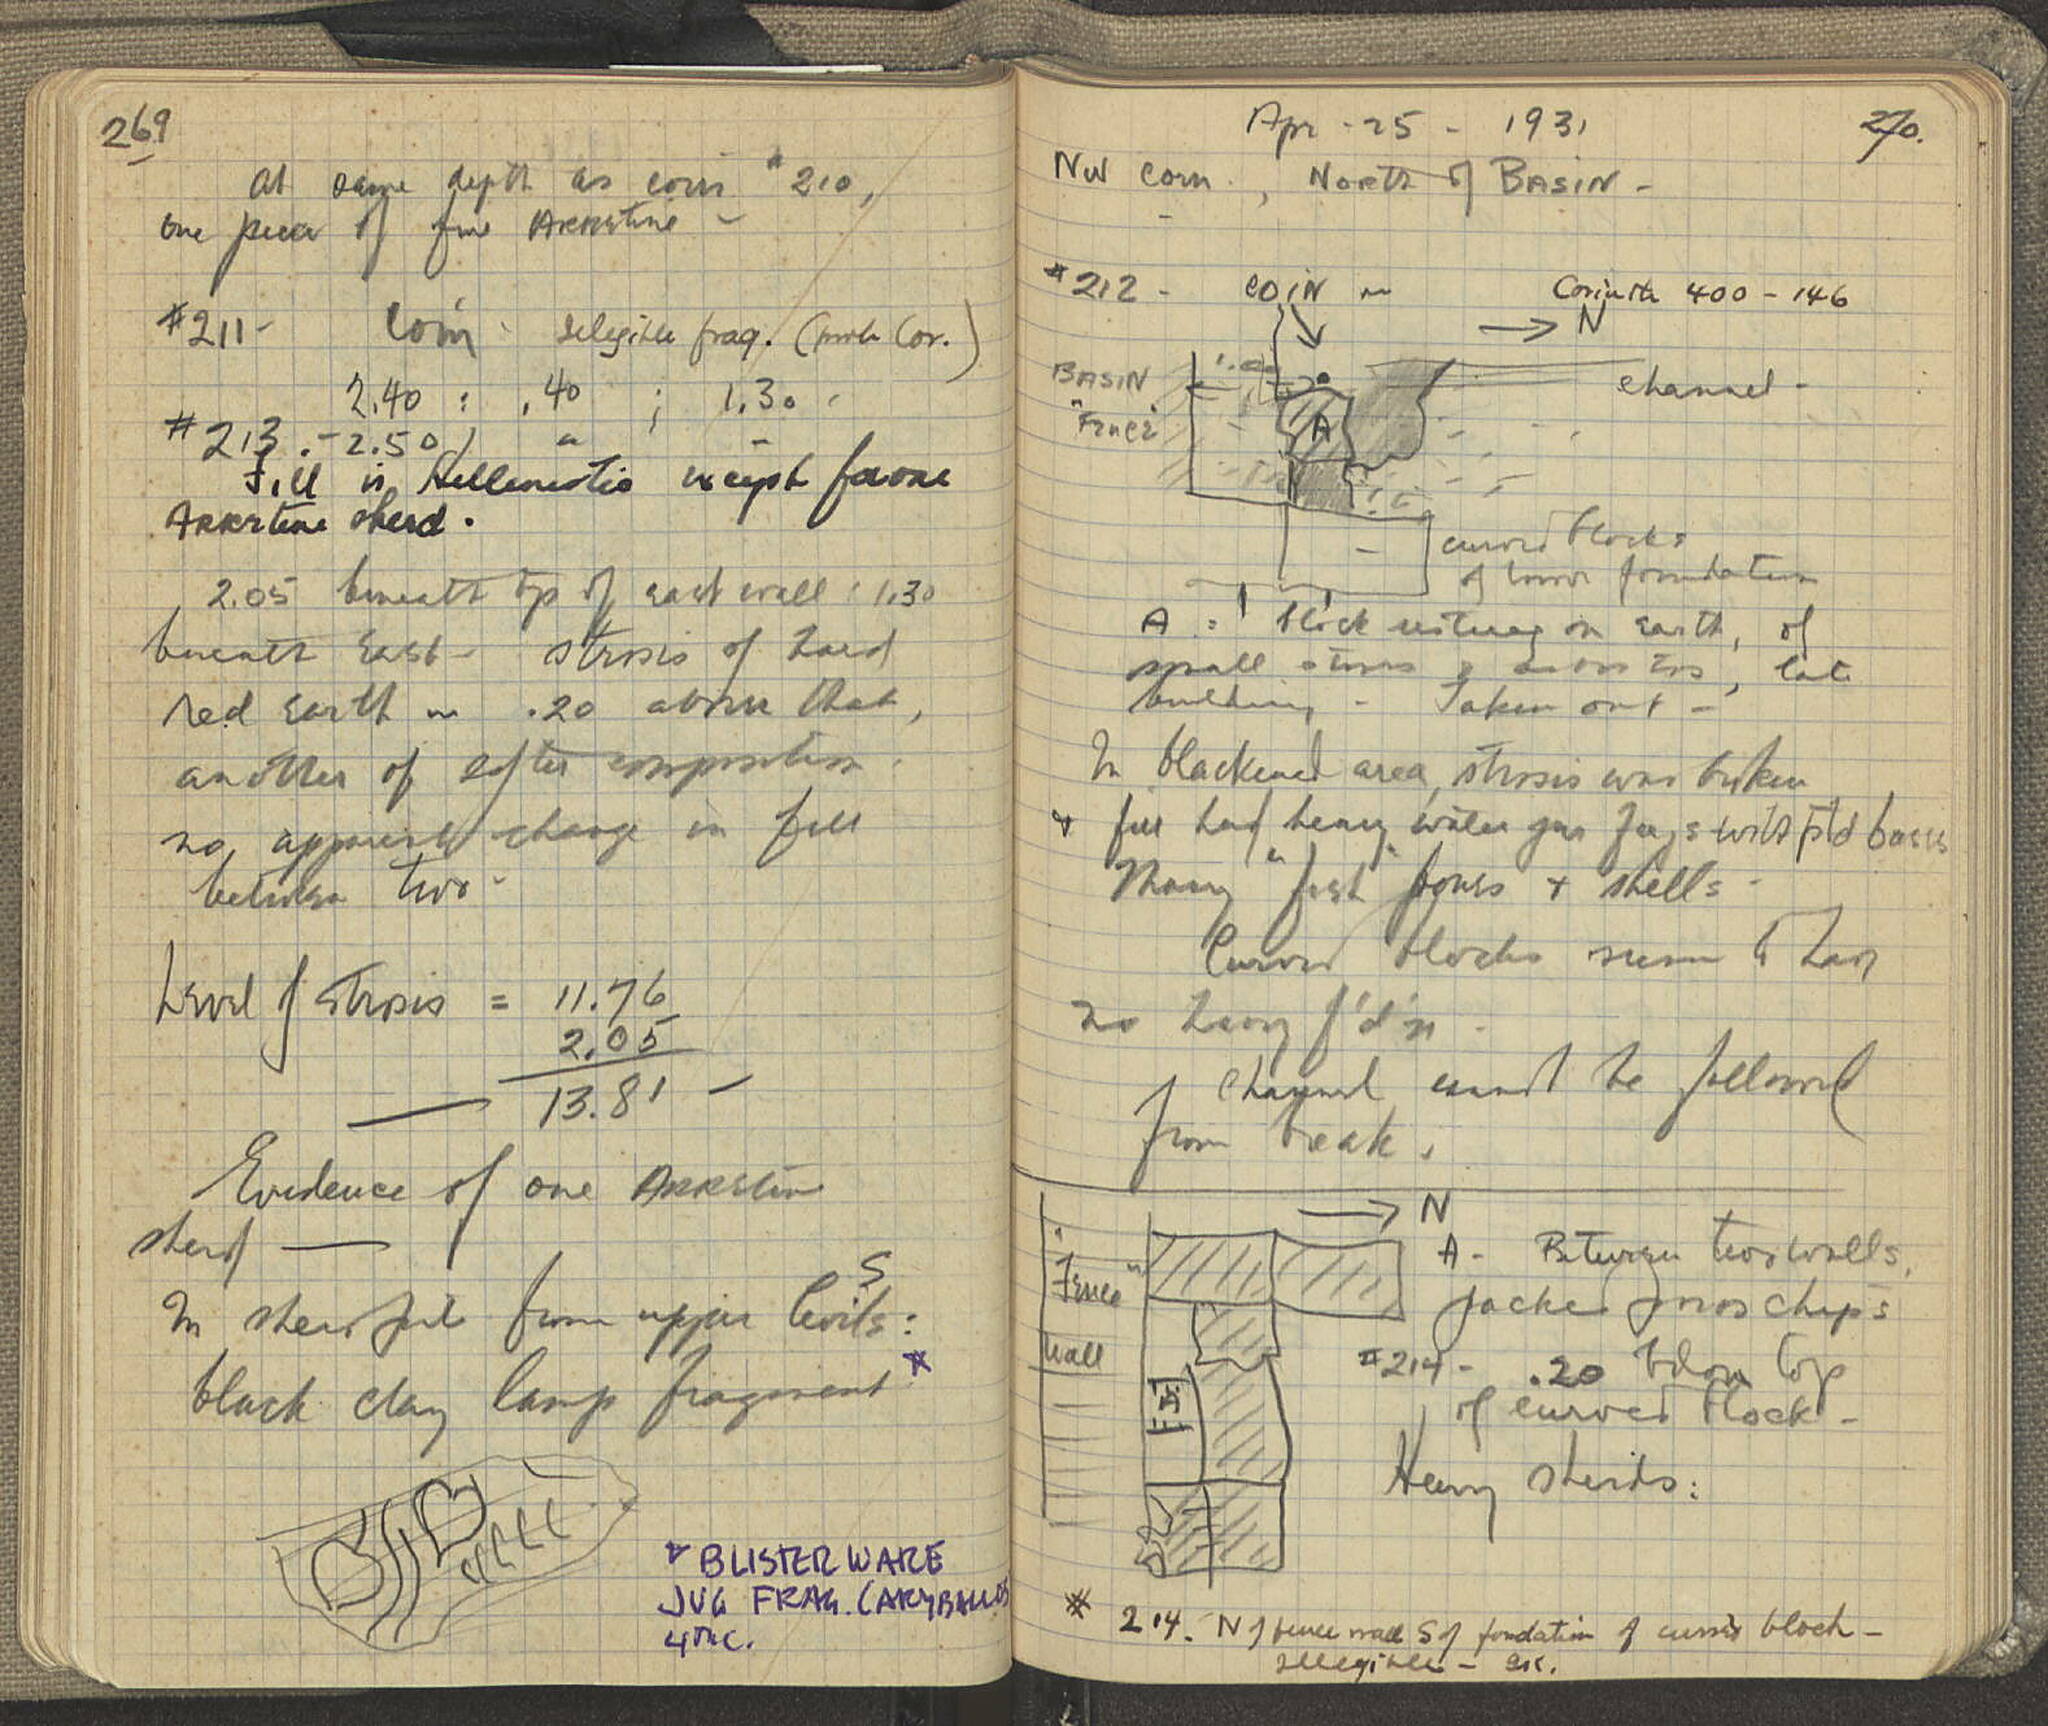 269
At same depth as coin #210,
one piece of fine Arretine -
#211 - Coin - Illegible frag. (prob Cor.)
2.40 : .40 ; 1.30 -
#213. - 2.50 ; " -
Fill is Hellenistic except for one
Arretine sherd.
2.05 beneath top of east wall : 1.30
beneath East - strosis of hard
red earth - .20 above that,
another of softer composition.
no apparent change in fill
between two -
Level of strosis = 11.76
2.05
13.81 -
Evidence of one Arretine
sherd —
In sherd fill from upper levels :
S
black clay lamp fragment *
* BLISTER WARE
JUG FRAG. (ARYBALLOS
4th C.
Apr - 25 - 1931
270.
NW corn., North of BASIN -
#212 - COIN - Corinth 400 - 146
N
BASIN
"Fence"
1.00
A
channel -
curved blocks
of lower foundation
A = block resting on earth, of
small stones & late
building - Taken out -
In blackened area, strosis was broken
& fill had heavy water jar frags with p't'd bases
Many fish bones & shells -
Curved blocks seem to have
no heavy f'd'n -
Channel cannot be followed
from break.
N
"Fence"
wall
A
A - Between two walls,
packed poros chips
#214 - .20 below top
of curved block -
Heavy sherds :
* 214. N of fence wall S of foundation of curved block -
illegible -